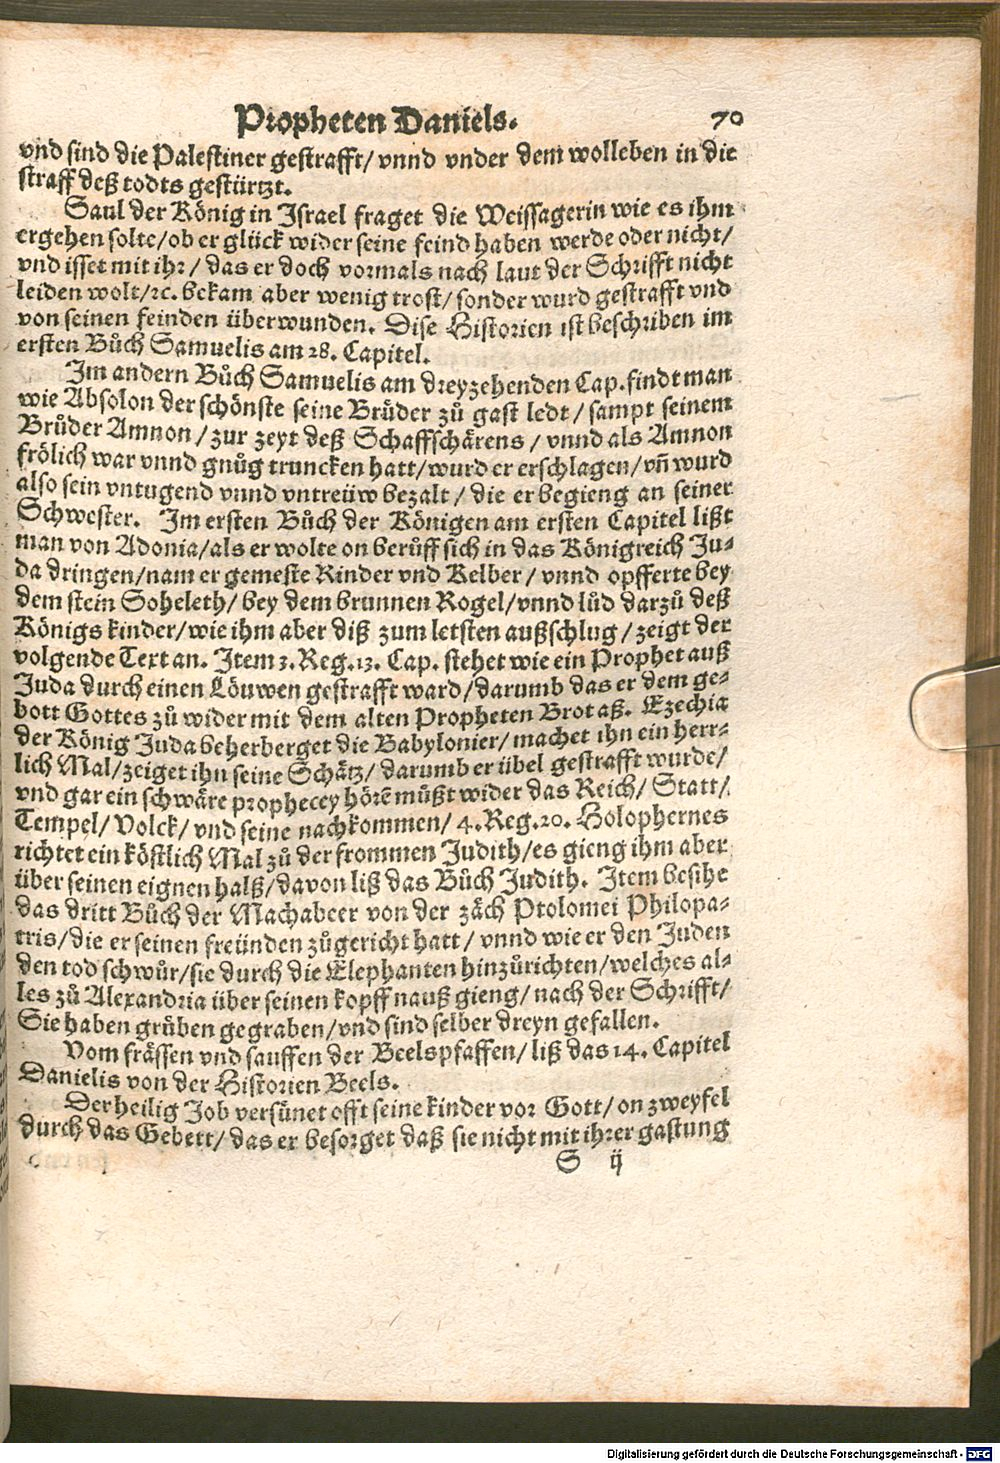 Propheten Daniels. 70
vnd sind die Palestiner gestrafft/ vnnd vnder dem wolleben in die
straff deß todts gestürtzt.
Saul der König in Israel fraget die Weissagerin wie es ihm
ergehen solte/ob er glück wider seine feind haben werde oder nicht/
vnd isset mit ihr/ das er doch vormals nach laut der Schrifft nicht
leiden wolt/ꝛc. bekam aber wenig trost/ sonder wurd gestrafft vnd
von seinen feinden überwunden. Dise Historien ist beschriben im
ersten Bůch Samuelis am 28. Capitel.
Im andern Bůch Samuelis am dreyzehenden Cap. findt man
wie Absolon der schönste seine Brůder zů gast ledt/ sampt seinem
Brůder Amnon/ zur zeyt deß Schaffschärens/ vnnd als Amnon
frölich war vnnd gnůg truncken hatt/ wurd er erschlagen/ vn̄ wurd
also sein vntugend vnnd vntreüw bezalt/ die er begieng an seiner
Schwester. Im ersten Bůch der Königen am ersten Capitel lißt
man von Adonia/als er wolte on berůff sich in das Königreich Ju-
da dringen/nam er gemeste Rinder vnd Kelber/ vnnd opfferte bey
dem stein Soheleth/ bey dem brunnen Rogel/vnnd lůd darzů deß
Königs kinder/wie ihm aber diß zum letsten außschlug/ zeigt der
volgende Text an. Item 3. Reg. 13. Cap. stehet wie ein Prophet auß
Juda durch einen Löuwen gestrafft ward/darumb das er dem ge-
bott Gottes zů wider mit dem alten Propheten Brot aß. Ezechia
der König Juda beherberget die Babylonier/ machet ihn ein herr-
lich Mal/zeiget ihn seine Schätz/ darumb er übel gestrafft wurde/
vnd gar ein schwäre prophecey hörē můßt wider das Reich/ Statt/
Tempel/ Volck/ vnd seine nachkommen/ 4. Reg. 20. Holophernes
richtet ein köstlich Mal zů der frommen Judith/es gieng ihm aber
über seinen eignen halß/davon liß das Bůch Judith. Item besihe
das dritt Bůch der Machabeer von der zäch Ptolomei Philopa-
tris/die er seinen freünden zůgericht hatt/ vnnd wie er den Juden
den tod schwůr/sie durch die Elephanten hinzůrichten/welches al-
les zů Alexandria über seinen kopff nauß gieng/ nach der Schrifft/
Sie haben grůben gegraben/vnd sind selber dreyn gefallen.
Vom frässen vnd sauffen der Beelspfaffen/ liß das 14. Capitel
Danielis von der Historien Beels.
Der heilig Job versünet offt seine kinder vor Gott/ on zweyfel
durch das Gebett/ das er besorget daß sie nicht mit ihrer gastung
S ij
Digitalisierung gefördert durch die Deutsche Forschungsgemeinschaft - DFG